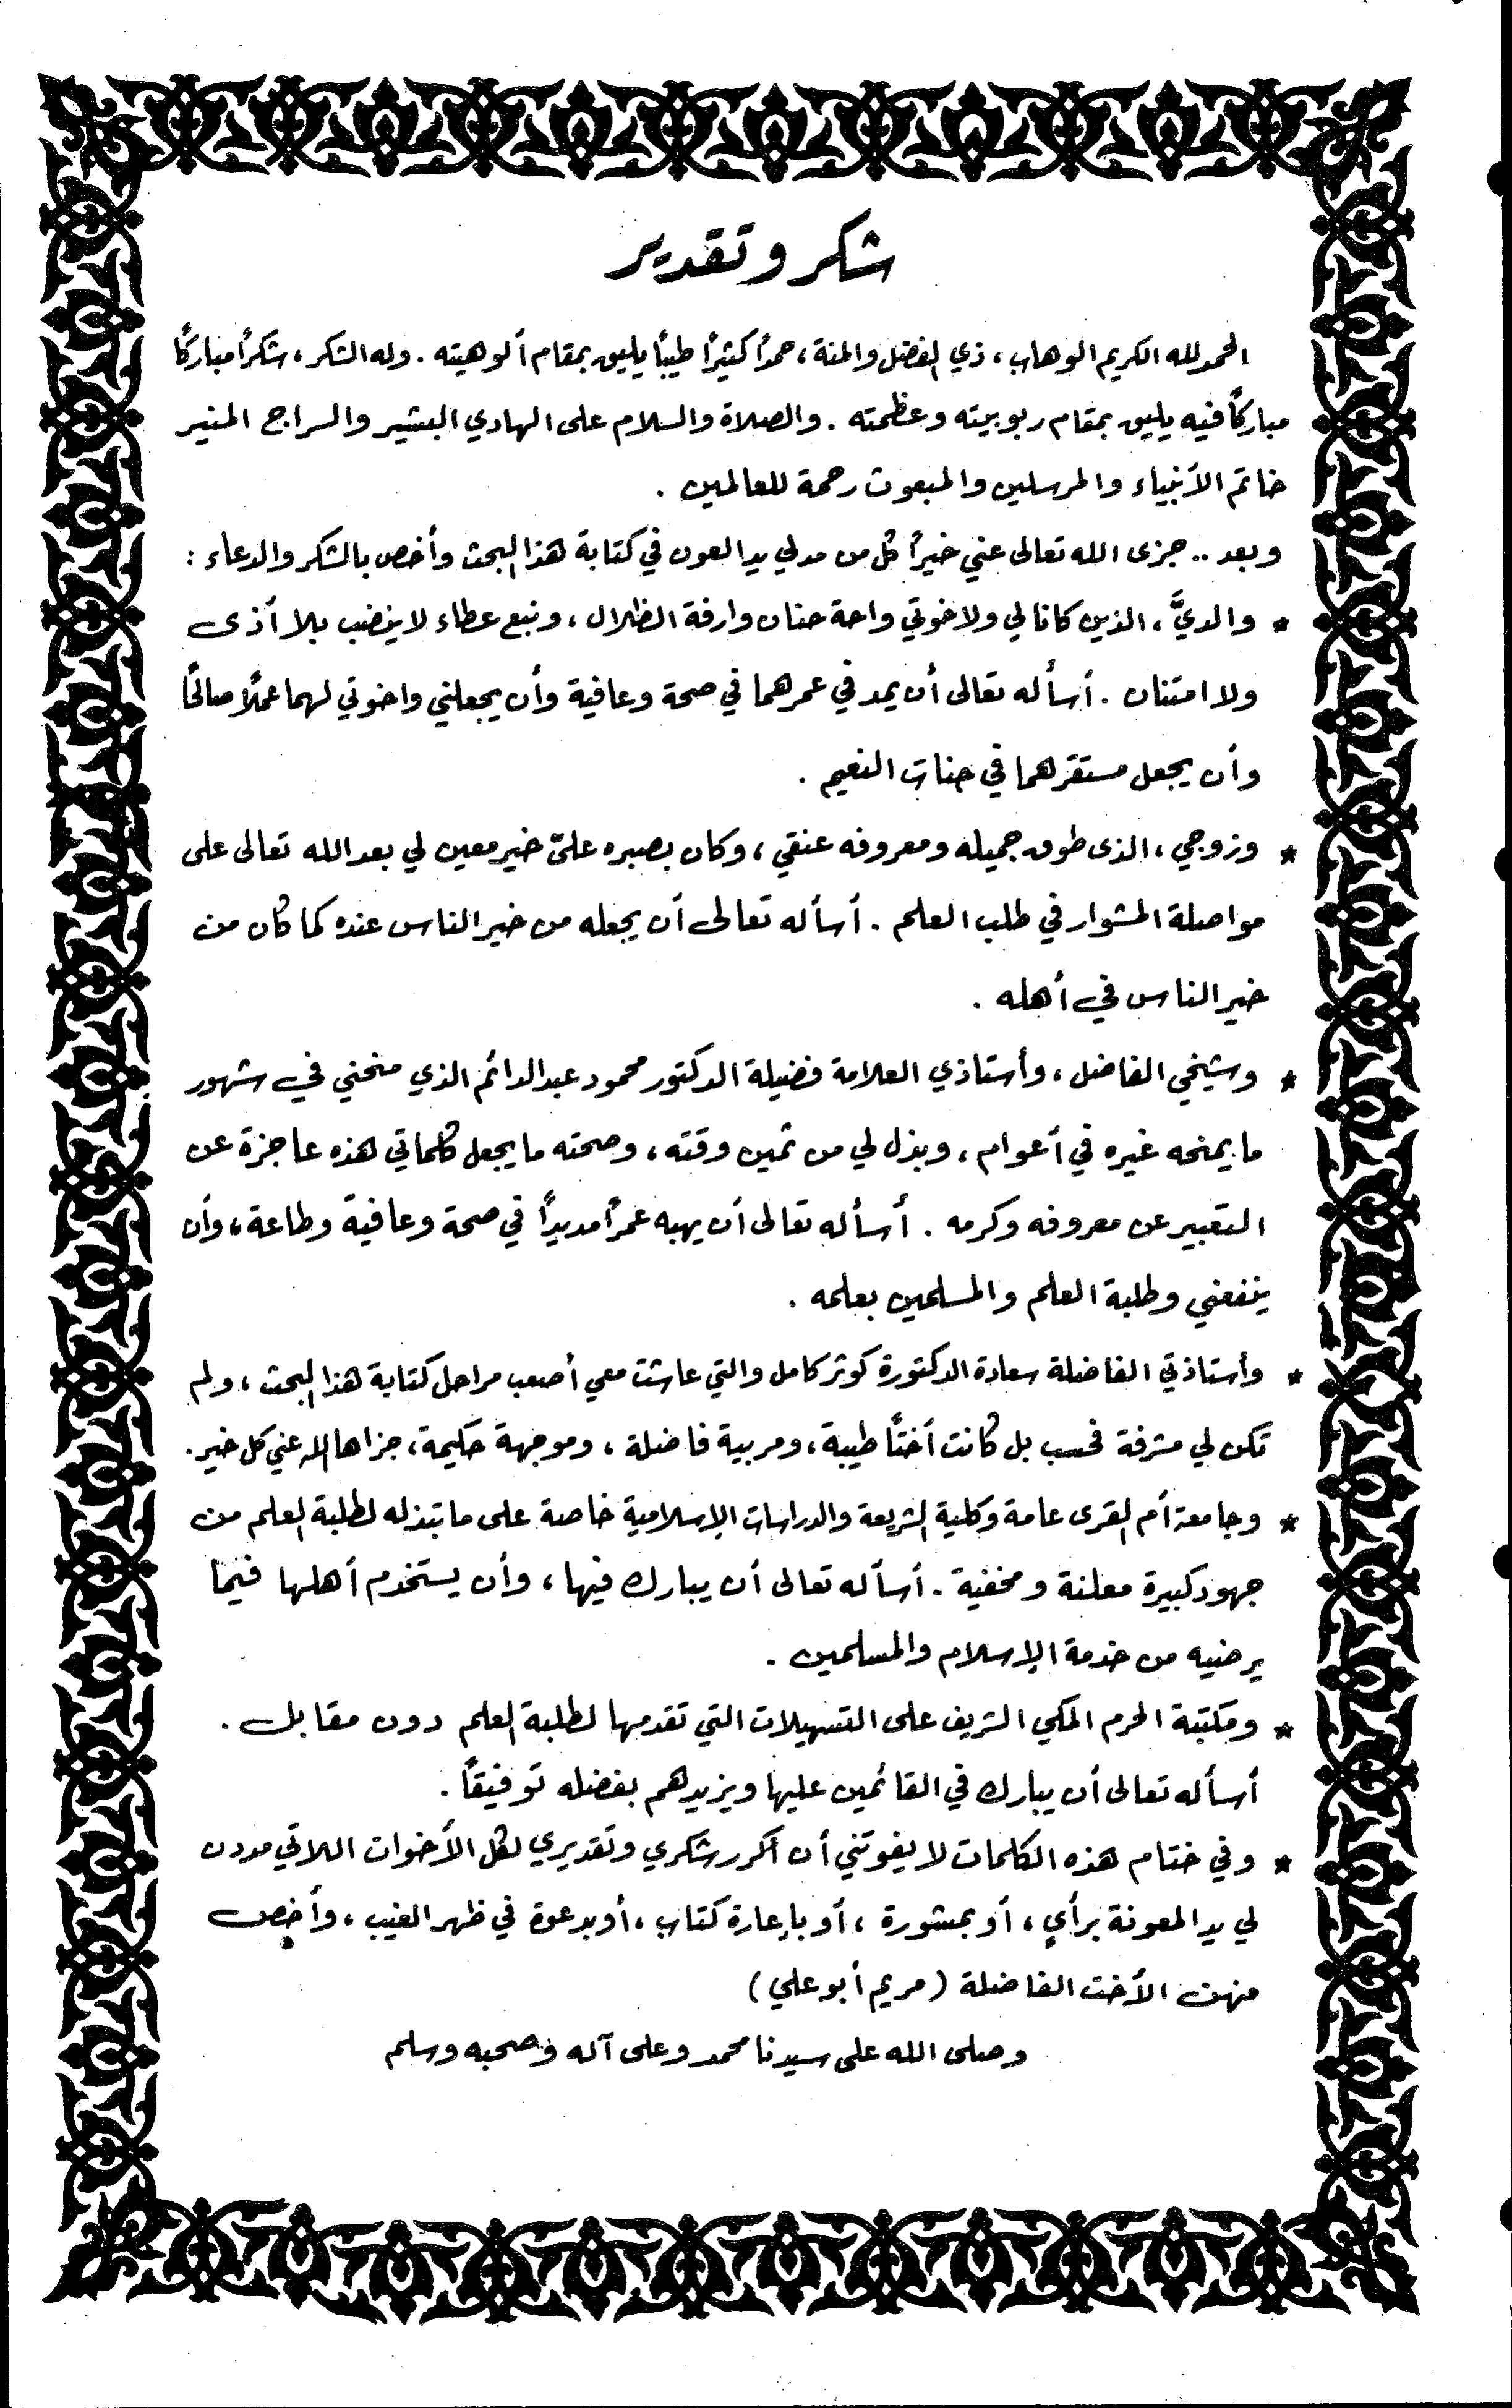 شكر وتقدير
الحمد لله الكريم الوهاب، ذي الفضل والمنة، حمداً كثيراً طيباً يليق بمقام ألوهيته. وله الشكر، شكراً مباركاً
مباركاً فيه يليق بمقام ربوبيته وعظمته. والصلاة والسلام على الهادي البشير والسراج المنير
خاتم الأنبياء والمرسلين والمبعوث رحمة للعالمين.
وبعد.. جزى الله تعالى عني خيراً كل من مد لي يد العون في كتابة هذا البحث وأخص بالشكر والدعاء:
* والديَّ، الذين كانا لي ولاخوتي واحة حنان وارفة الظلال، ونبع عطاء لا ينضب بلا أذى
ولا امتنان. أسأله تعالى أن يمد في عمرهما في صحة وعافية وأن يجعلني واخوتي لهما عملاً صالحاً
وأن يجعل مستقرهما في جنات النعيم.
* وزوجي، الذى طوق جميله ومعروفه عنقي، وكان بصبره عليّ خير معين لي بعد الله تعالى على
مواصلة المشوار في طلب العلم. أسأله تعالى أن يجعله من خير الناس عنده كما كان من
خير الناس في أهله.
* وشيخي الفاضل، وأستاذي العلامة فضيلة الدكتور محمود عبد الدائم الذي منحني في شهور
ما يمنحه غيره في أعوام، وبذل لي من ثمين وقته، وصحته ما يجعل كلماتي هذه عاجزة عن
التعبير عن معروفه وكرمه. أسأله تعالى أن يهبه عمراً مديداً في صحة وعافية وطاعة، وأن
ينفعني وطلبة العلم والمسلمين بعلمه.
* وأستاذتي الفاضلة سعادة الدكتورة كوثر كامل والتي عاشت معي أصعب مراحل كتابة هذا البحث، ولم
تكن لي مشرفة فحسب بل كانت أختاً طيبة، ومربية فاضلة، وموجهة حكيمة، جزاها الله عني كل خير.
* وجامعة أم القرى عامة وكلية الشريعة والدراسات الإسلامية خاصة على ما تبذله لطلبة العلم من
جهود كبيرة معلنة ومخفية. أسأله تعالى أن يبارك فيها، وأن يستخدم أهلها فيما
يرضيه من خدمة الإسلام والمسلمين.
* ومكتبة الحرم المكي الشريف على التسهيلات التي تقدمها لطلبة العلم دون مقابل.
أسأله تعالى أن يبارك في القائمين عليها ويزيدهم بفضله توفيقاً.
* وفي ختام هذه الكلمات لا يفوتني أن أكرر شكري وتقديري لكل الأخوات اللاتي مددن
لي يد المعونة برأيٍ، أو بمشورة، أو بإعارة كتاب، أو بدعوة في ظهر الغيب، وأخص
منهن الأخت الفاضلة (مريم أبو علي)
وصلى الله على سيدنا محمد وعلى آله وصحبه وسلم